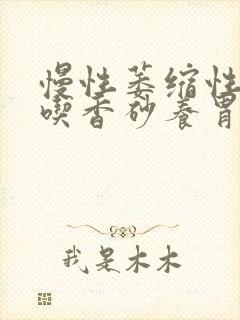 慢性萎缩性
喫香砂养胃
我是木木